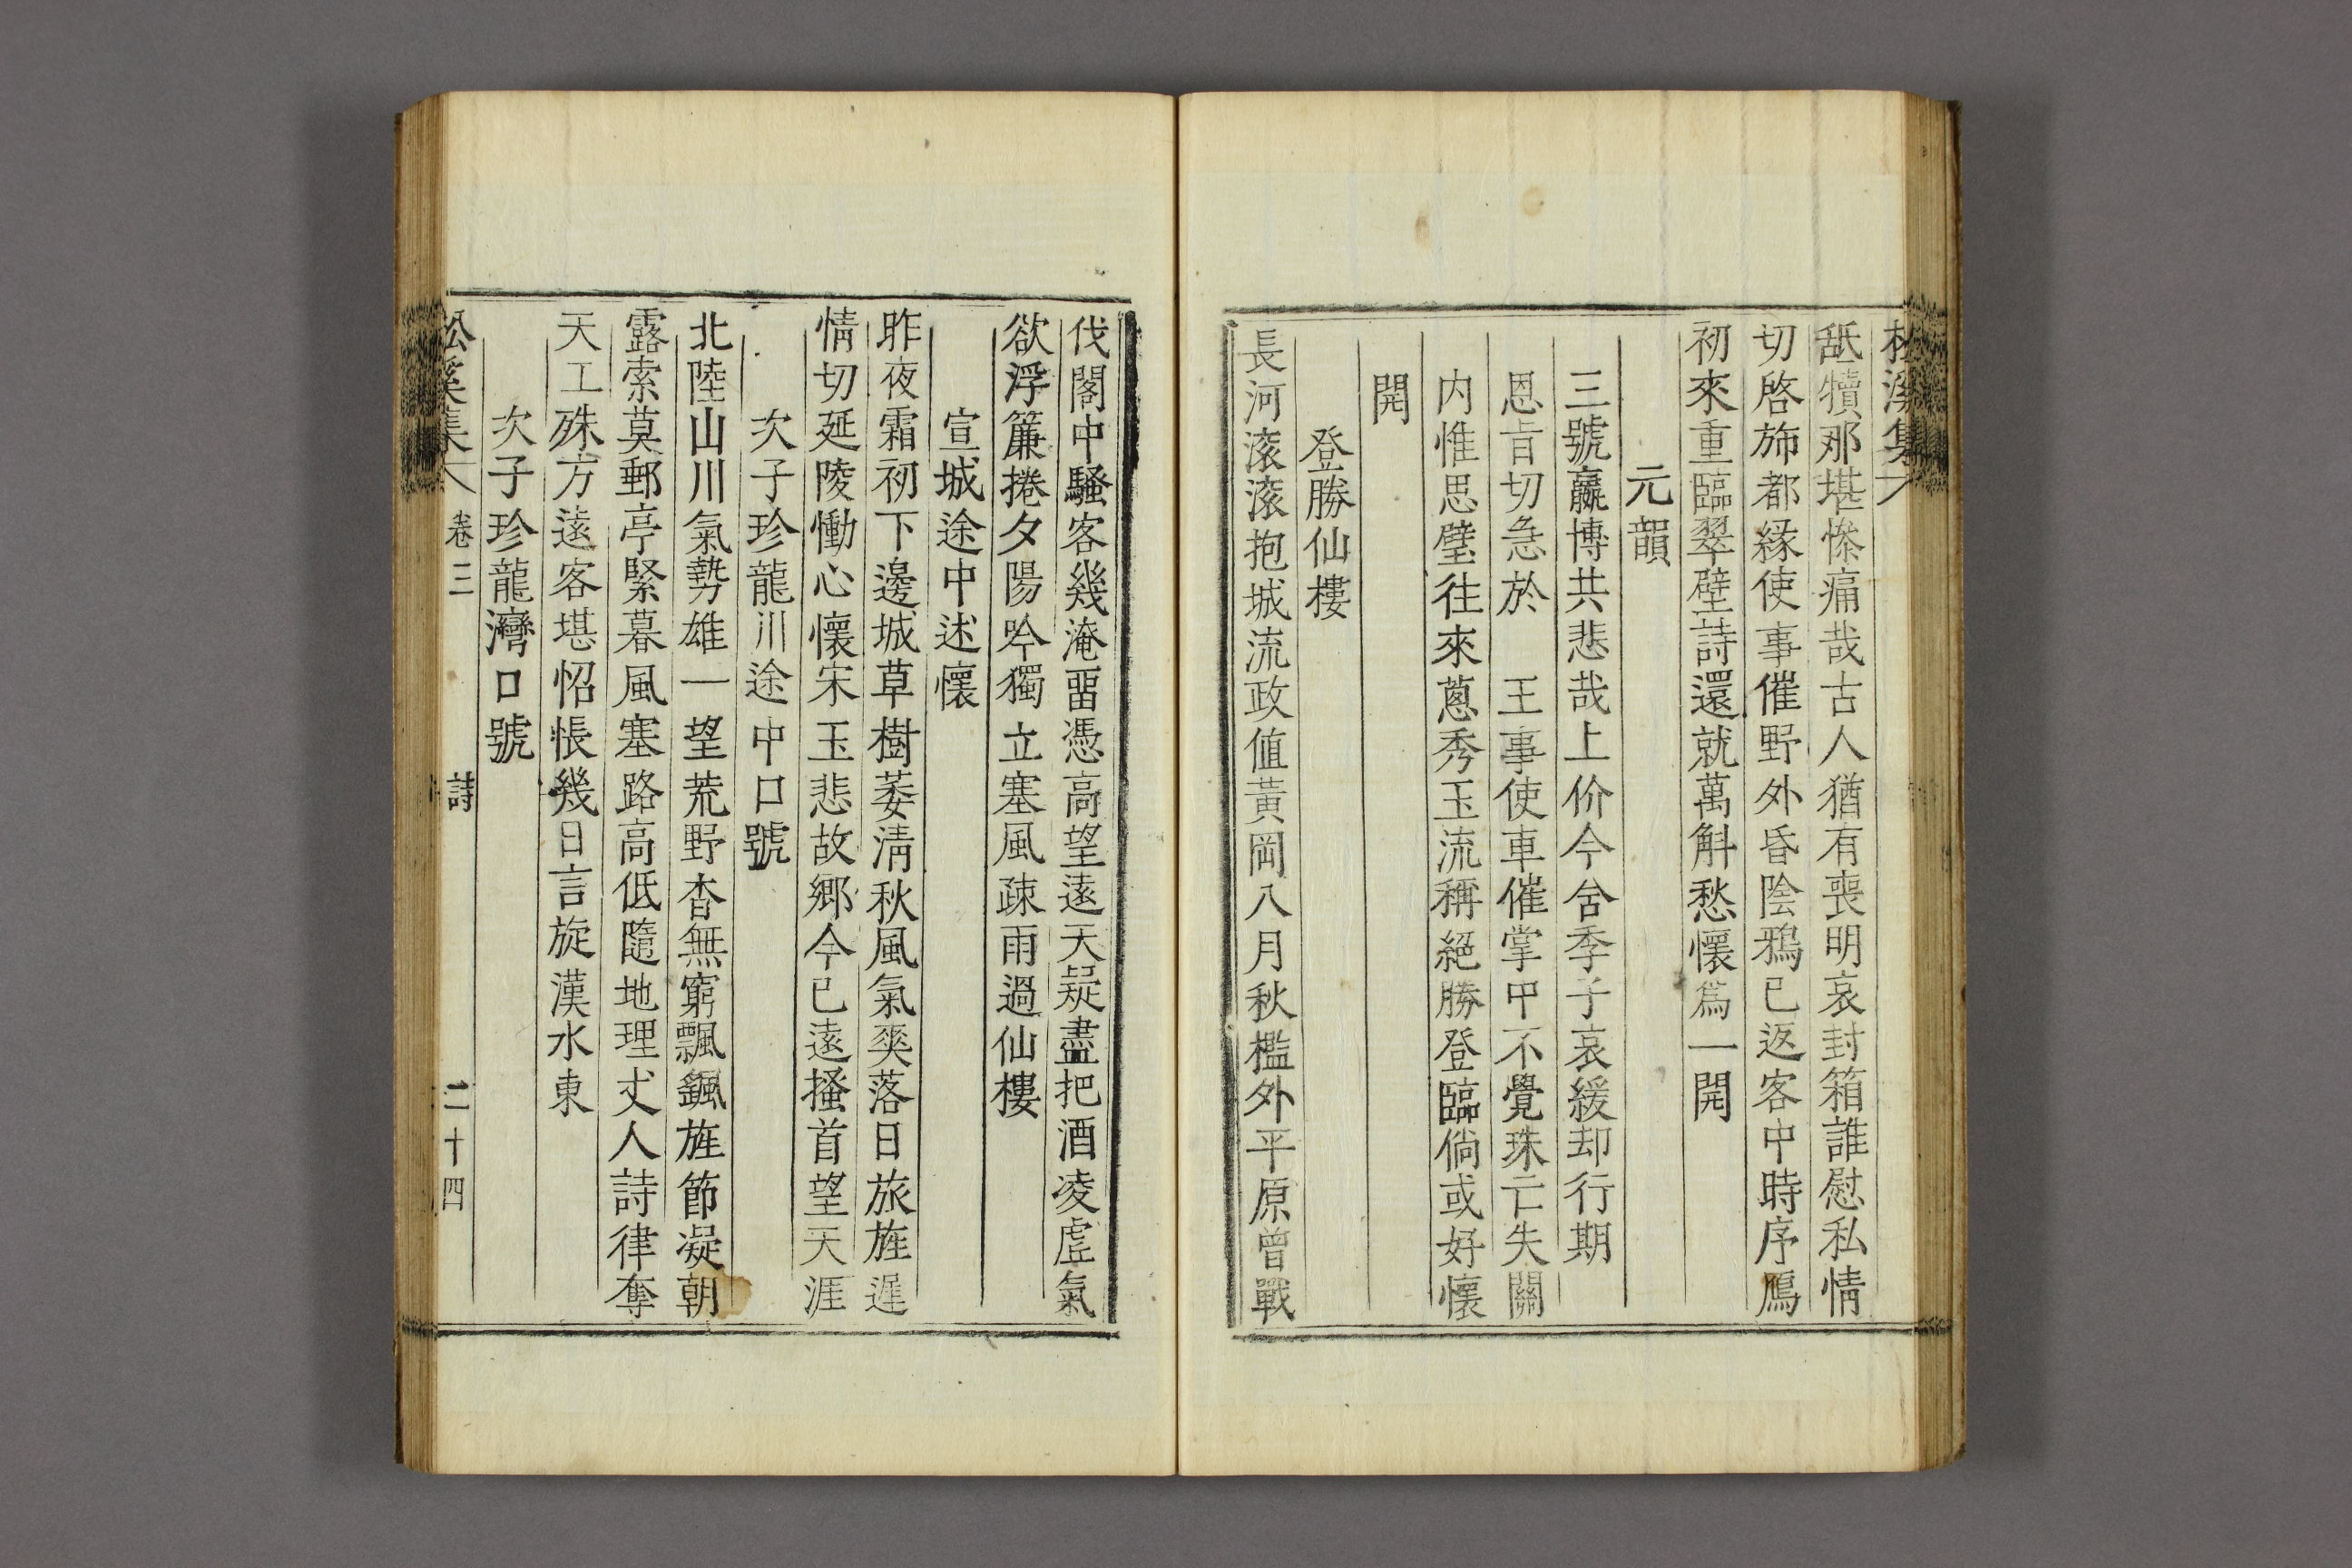 松溪集
舐犢那堪慘痛哉古人猶有喪明哀封箱誰慰私情
切啓斾都緣使事催野外昏陰鴉已返客中時序鴈
初來重臨翠壁詩還就萬斛愁懷爲一開
元韻
三號嬴博共悲哉上价今舍季子哀緩却行期
恩旨切急於　王事使車催掌中不覺珠亡失關
内惟思璧往來蔥秀玉流稱絕勝登臨倘或好懷
開
登勝仙樓
長河滚滚抱城流政值黃岡八月秋檻外平原曾戰
伐閣中騷客幾淹畱憑高望遠天疑盡把酒凌虛氣
欲浮簾捲夕陽吟獨立塞風疎雨過仙樓
宣城途中述懷
昨夜霜初下邊城草樹萎淸秋風氣爽落日旅旌遲
情切延陵慟心懷宋玉悲故鄉今已遠搔首望天涯
次子珍龍川途中口號
北陸山川氣勢雄一望荒野杳無窮飄颻旌節凝朝
露索莫郵亭緊暮風塞路高低隨地理丈人詩律奪
天工殊方遠客堪怊悵幾日言旋漢水東
次子珍龍灣口號
松溪集 卷三 詩 二十四